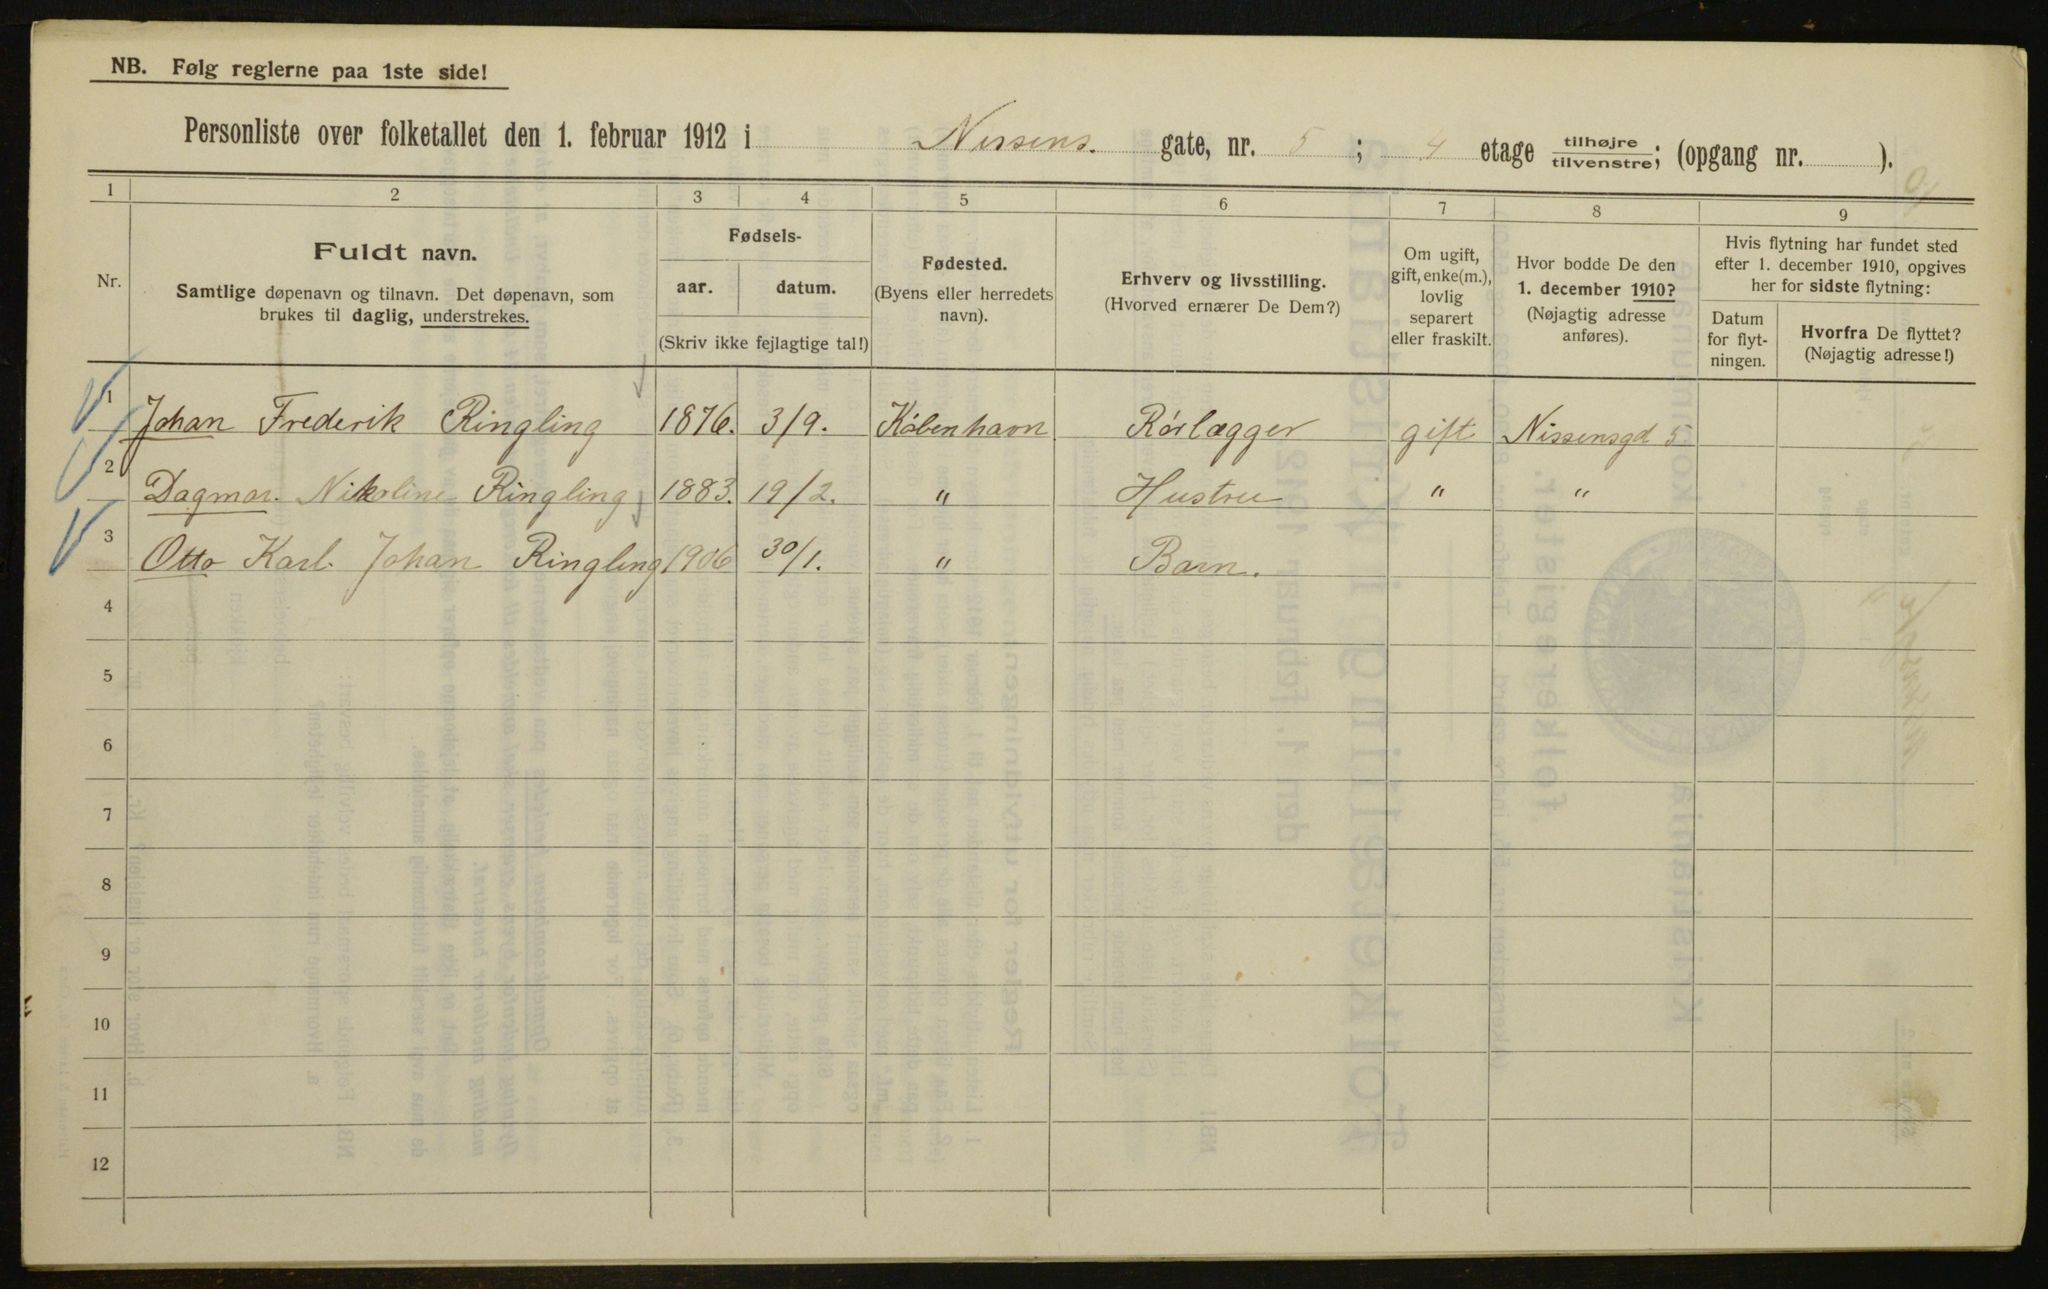 NB. Følg reglerne paa 1ste side!
Personliste over folketallet den 1. februar 1912 i Nissens. gate, nr. 5 ; 4 etage tilhøjre tilvenstre; (opgang nr. ).
1 2 3 4 5 6 7 8 9
Nr.
Fuldt navn.
Samtlige døpenavn og tilnavn. Det døpenavn, som
brukes til daglig, understrekes.
Fødsels-
aar. datum.
(Skriv ikke fejlagtige tal!)
Fødested.
(Byens eller herredets
navn).
Erhverv og livsstilling.
(Hvorved ernærer De Dem?)
Om ugift,
gift, enke(m.),
lovlig
separert
eller fraskilt.
Hvor bodde De den
1. december 1910?
(Nøjagtig adresse
anføres).
Hvis flytning har fundet sted
efter 1. december 1910, opgives
her for sidste flytning:
Datum
for flyt-
ningen.
Hvorfra De flyttet?
(Nøjagtig adresse!)
1 Johan Frederik Ringling 1876. 3/9. København Rörlægger gift Nissensgd 5
2 Dagmar. Nikoline Ringling 1883. 19/2. " Hustru " "
3 Otto Karl. Johan Ringling 1906 30/1. " Barn.
4
5
6
7
8
9
10
11
12